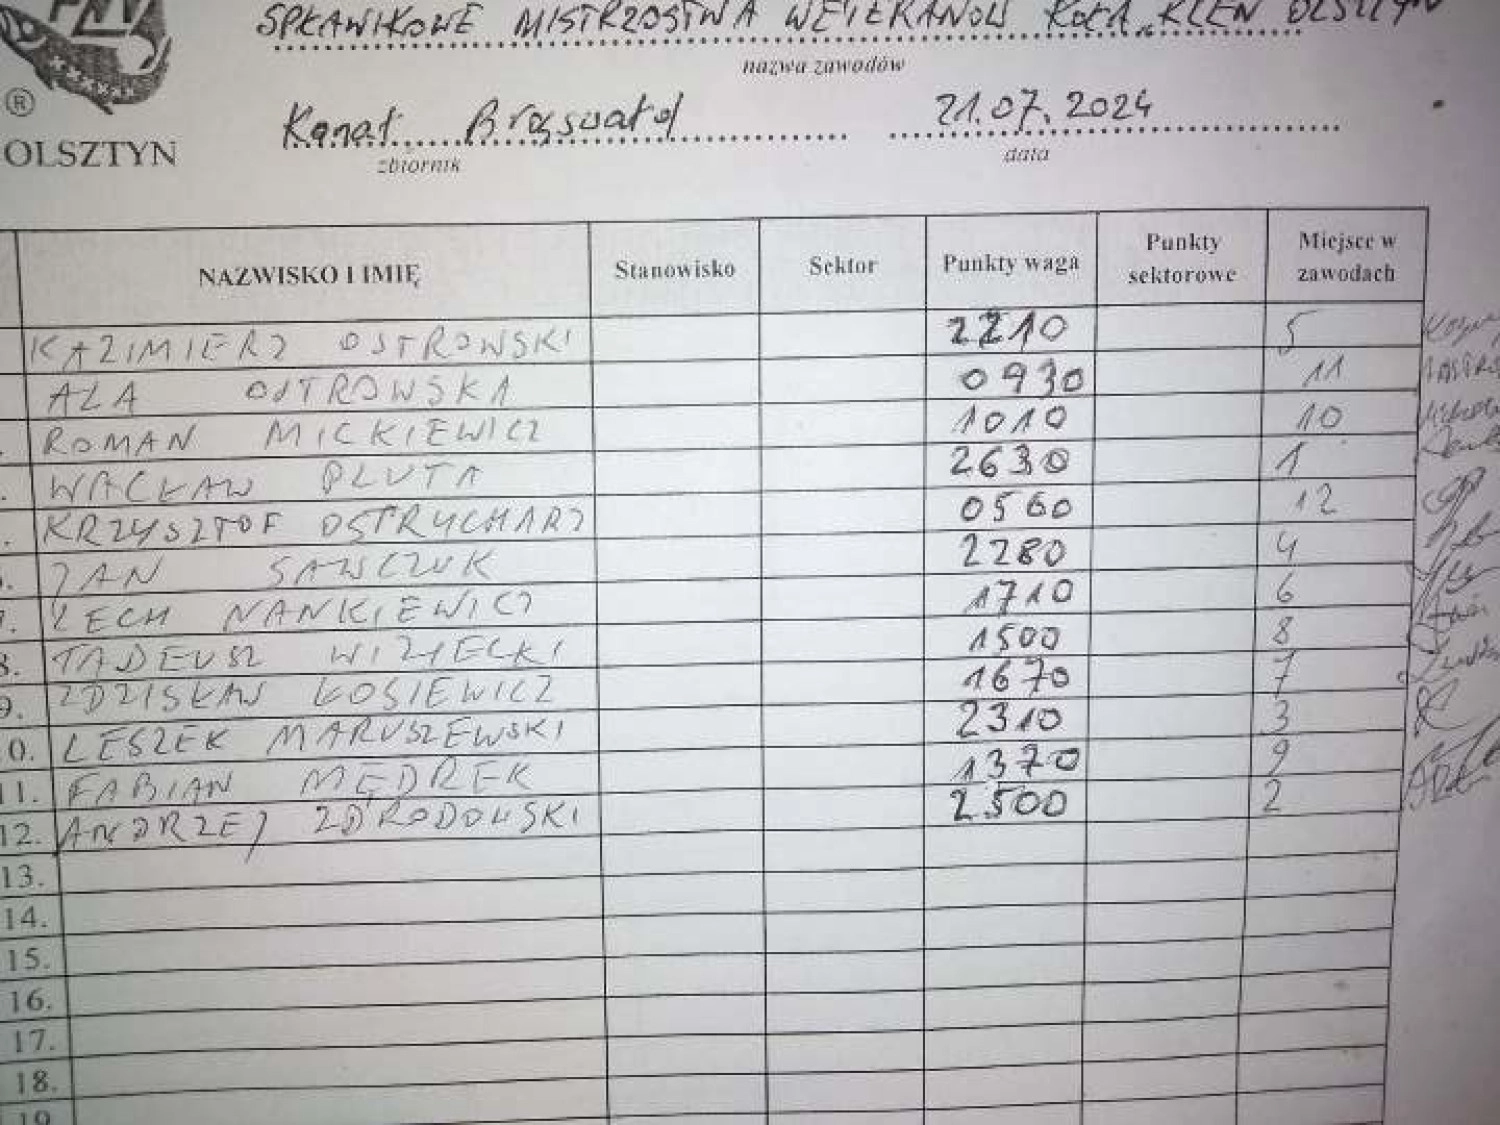 SPŁAWIKOWE MISTRZOSTWA WETERANÓW KOŁA „KLEŃ OLSZTYN
nazwa zawodów
® Kanał 21.07.2024
OLSZTYN zbiornik data
NAZWISKO I IMIĘ Stanowisko Sektor Punkty waga Punkty sektorowe Miejsce w zawodach
KAZIMIERZ OSTROWSKI 2210 5
ALA OSTROWSKA 0930 11
ROMAN MICKIEWICZ 1010 10
WACŁAW PLUTA 2630 1
KRZYSZTOF OSTRYCHARZ 0560 12
JAN SAWCZUK 2280 4
LECH NANKIEWICZ 1710 6
8. TADEUSZ WIZIECKI 1500 8
9. ZDZISŁAW ŁOSIEWICZ 1670 7
0. LESZEK MARUSZEWSKI 2310 3
11. FABIAN MĘDREK 1370 9
12. ANDRZEJ ZDRODOWSKI 2500 2
13.
14.
15.
16.
17.
18.
19